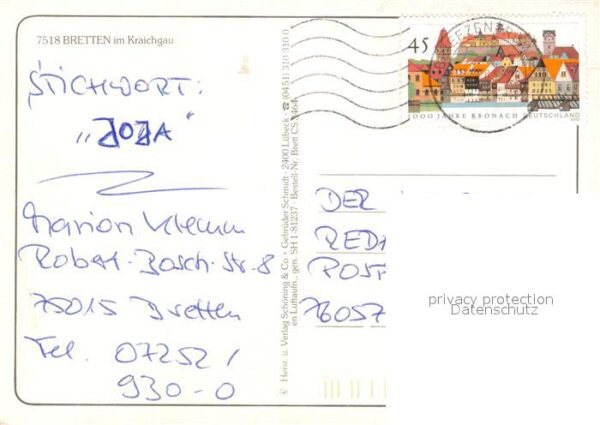 7518 BRETTEN im Kraichgau
STICHWORT:
„JOJA“
Marion Klemm
Robert-Bosch-Str. 8
75015 Bretten
Tel. 07252 /
930-0
© Herst. u. Verlag Schöning & Co + Gebrüder Schmidt · 2400 Lübeck · ☎ (0451) 310 310-0
en Luftaufn., gen. SH 1-81237 · Bestell-Nr. Brett CS
45
1000 JAHRE KRONACH DEUTSCHLAND
DER
POST
76057
privacy protection
Datenschutz